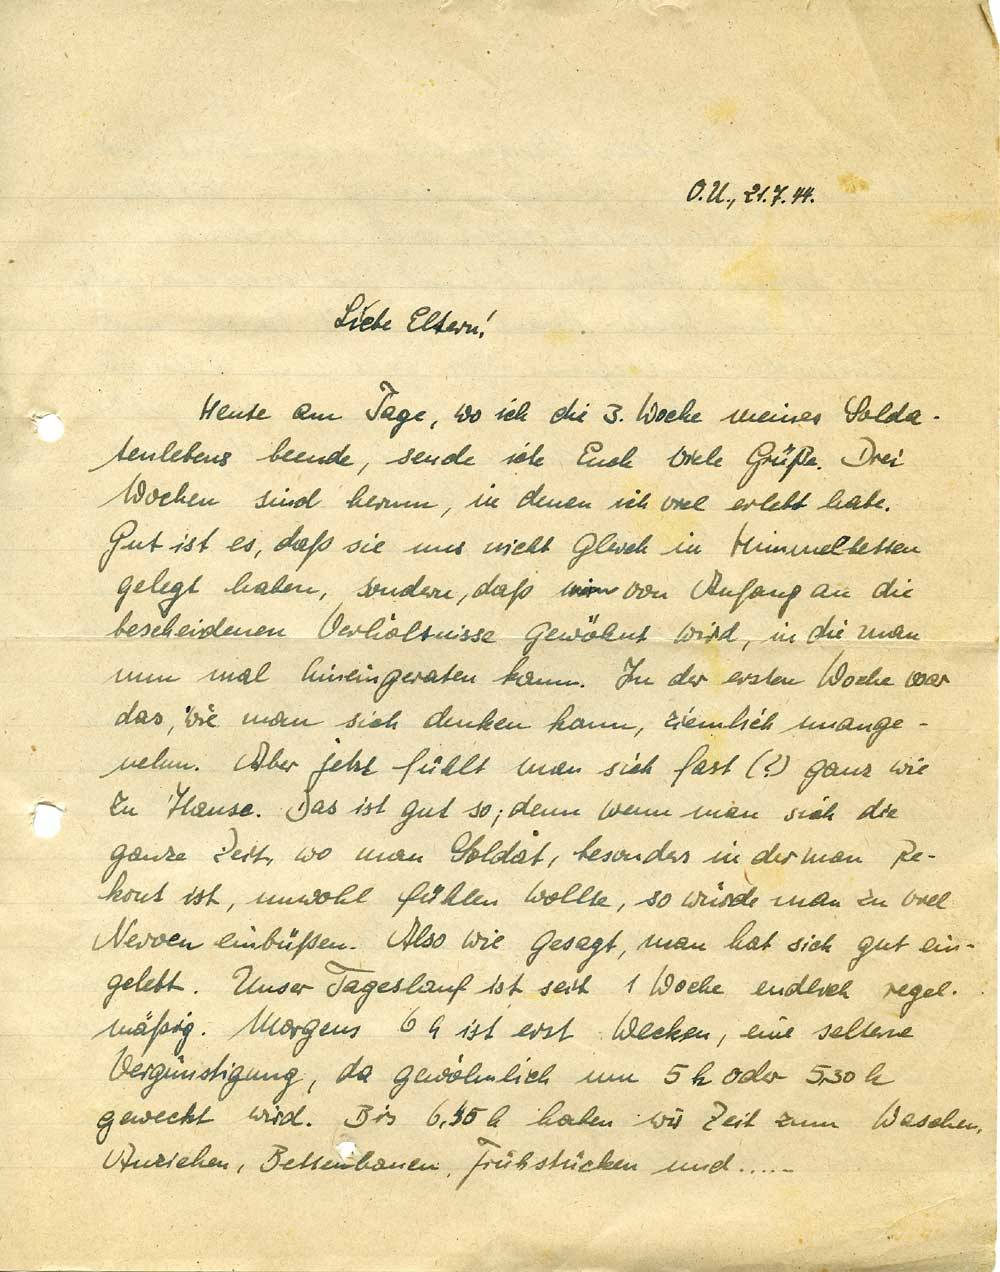 O.U., 21.7.44.
Liebe Eltern!
Heute am Tage, wo ich die 3. Woche meines Solda-
tenlebens beende, sende ich Euch viele Grüße. Drei
Wochen sind herum, in denen ich viel erlebt habe.
Gut ist es, daß sie uns nicht gleich in Himmelbetten
gelegt haben, sondern, daß von Anfang an die
bescheidenen Verhältnisse gewöhnt wird, in die man
nun mal hineingeraten kann. In der ersten Woche war
das, wie man sich denken kann, ziemlich unange-
nehm. Aber jetzt fühlt man sich fast (?) ganz wie
zu Hause. Das ist gut so; denn wenn man sich die
ganze Zeit, wo man Soldat, besonders in der man Re-
krut ist, unwohl fühlen wollte, so würde man zu viel
Nerven einbüßen. Also wie gesagt, man hat sich gut ein-
gelebt. Unser Tageslauf ist seit 1 Woche endlich regel-
mäßig. Morgens 6 h ist erst Wecken, eine seltene
Vergünstigung, da gewöhnlich um 5 h oder 5,30 h
geweckt wird. Bis 6,45 h haben wir Zeit zum Waschen,
Anziehen, Bettenbauen, Frühstücken und.....